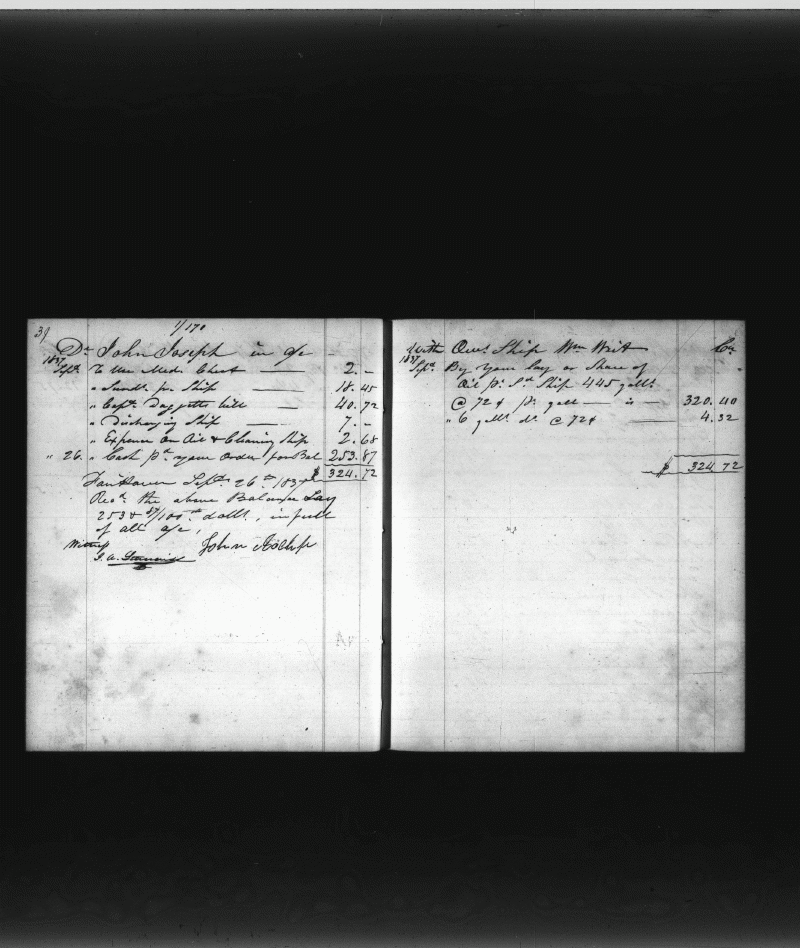 39
1/170
Dr John Joseph in a/c
1837
Sept. To Use Medi. Chest — 2.–
" Sunds. pr. Ship — 18.45
" Capt. Daggetts bill — 40.72
" Discharging Ship — 7.–
" Expense on Oil & Cleaning Ship 2.68
" 26. " Cash pd. your order for Bal 253.87
$ 324.72
Fairhaven Sept. 26th 1837
Recd. the above Balance Say
253 & 87/100ths dolls., in full
of all a/c,
Witness
John Joseph
With Own. Ship Wm Cr.
1837
Sept. By your lay or Share of
Oil pr. Sd. Ship 445 galls.
@ 72¢ pr. gall — is — 320.40
" 6 galls. do. @ 72¢ — 4.32
$ 324.72